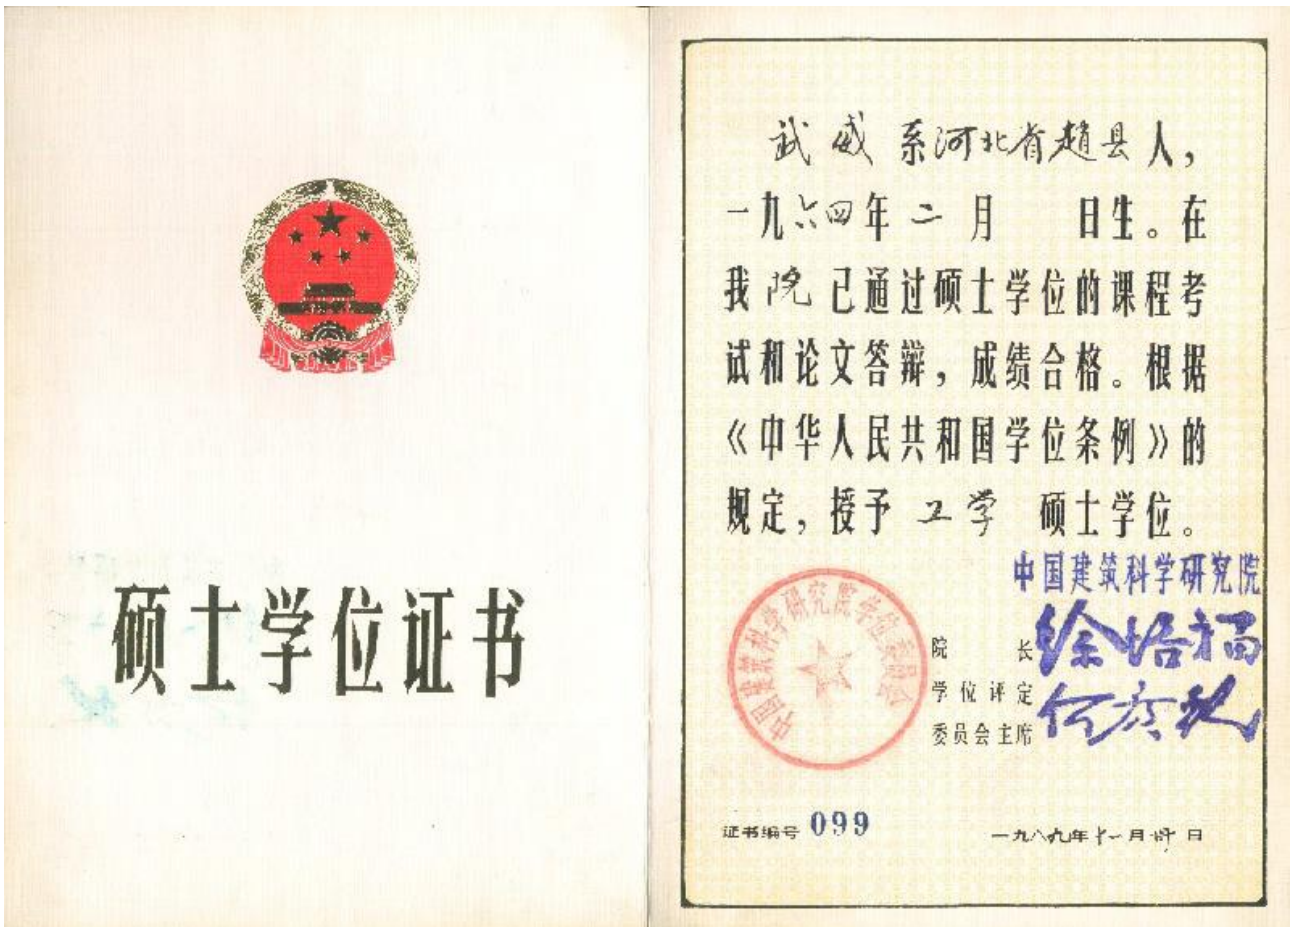 硕士学位证书
武威系河北省趙县人，
一九六四年二月　　日生。在
我院已通过硕士学位的课程考
试和论文答辩，成绩合格。根据
《中华人民共和国学位条例》的
规定，授予 工学 硕士学位。
中国建筑科学研究院
中国建筑科学研究院学位委员会
院　　长 徐培福
学位评定
委员会主席
证书编号 099
一九八九年十一月　日